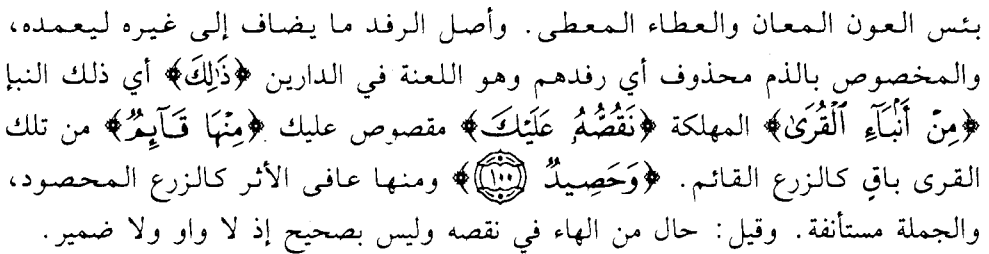 بئس العون المعان والعطاء المعطى. وأصل الرفد ما يضاف إلى غيره ليعمده،
والمخصوص بالذم محذوف أي رفدهم وهو اللعنة في الدارين ﴿ذَٰلِكَ﴾ أي ذلك النبإ
﴿مِنْ أَنۢبَآءِ ٱلْقُرَىٰ﴾ المهلكة ﴿نَقُصُّهُۥ عَلَيْكَ﴾ مقصوص عليك ﴿مِنْهَا قَآئِمٌ﴾ من تلك
القرى باقٍ كالزرع القائم. ﴿وَحَصِيدٌ ١٠٠﴾ ومنها عافى الأثر كالزرع المحصود،
والجملة مستأنفة. وقيل: حال من الهاء في نقصه وليس بصحيح إذ لا واو ولا ضمير.